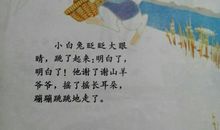 小白兔眨眨大眼
睛，跳了起来：明白了，
明白了！他谢了谢山羊
爷爷，摇了摇长耳朵，
蹦蹦跳跳地走了。